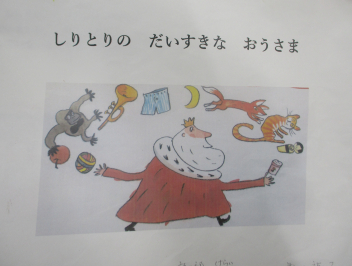 しりとりの だいすきな おうさま